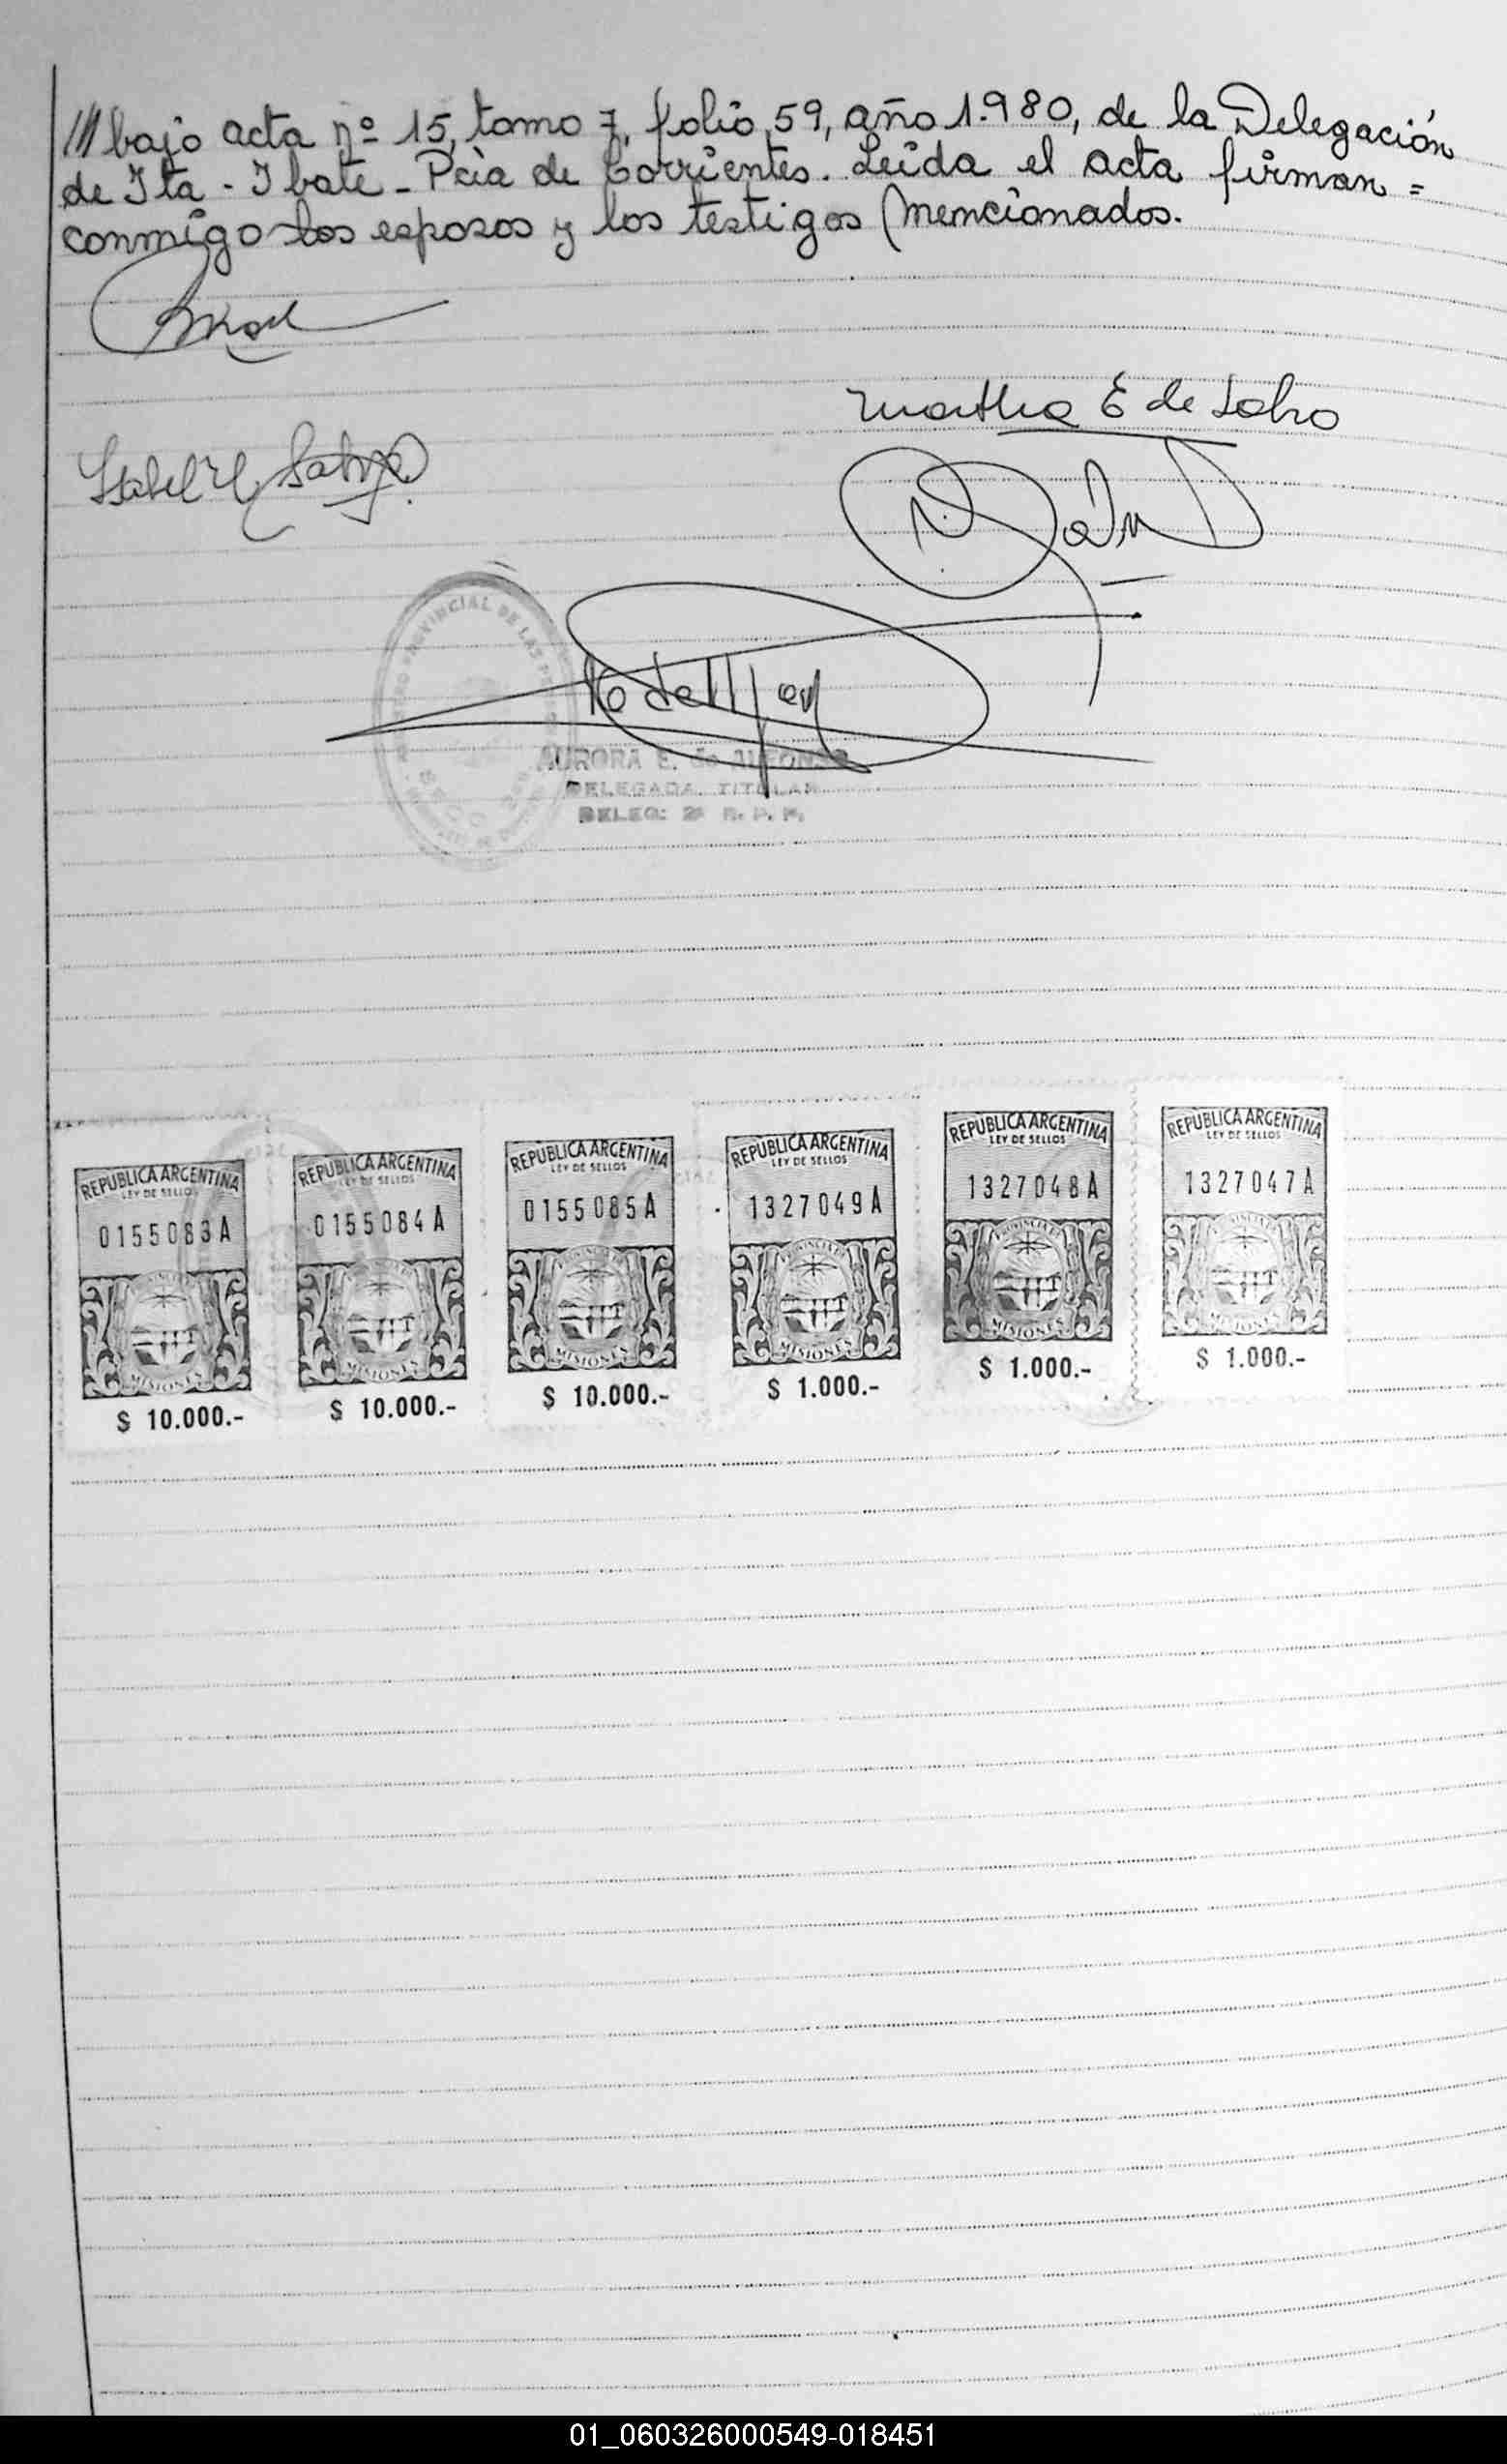 /// bajo acta nº 15, tomo 7, folio 59, año 1.980, de la Delegación
de Ita - Ibate - Pcia de Corrientes. Leida el acta firman =
conmigo los esposos y los testigos mencionados.
Martha E de
Isabel
PROVINCIAL DE LAS
AURORA E. de ALFONSO
DELEGADA TITULAR
DELEG: 2ª R. P. P.
REPUBLICA ARGENTINA
LEY DE SELLOS
0155083A
MISIONES
$ 10.000.-
REPUBLICA ARGENTINA
LEY DE SELLOS
0155084A
MISIONES
$ 10.000.-
REPUBLICA ARGENTINA
LEY DE SELLOS
0155085A
MISIONES
$ 10.000.-
REPUBLICA ARGENTINA
LEY DE SELLOS
1327049A
MISIONES
$ 1.000.-
REPUBLICA ARGENTINA
LEY DE SELLOS
1327048A
MISIONES
$ 1.000.-
REPUBLICA ARGENTINA
LEY DE SELLOS
1327047A
MISIONES
$ 1.000.-
01_060326000549-018451